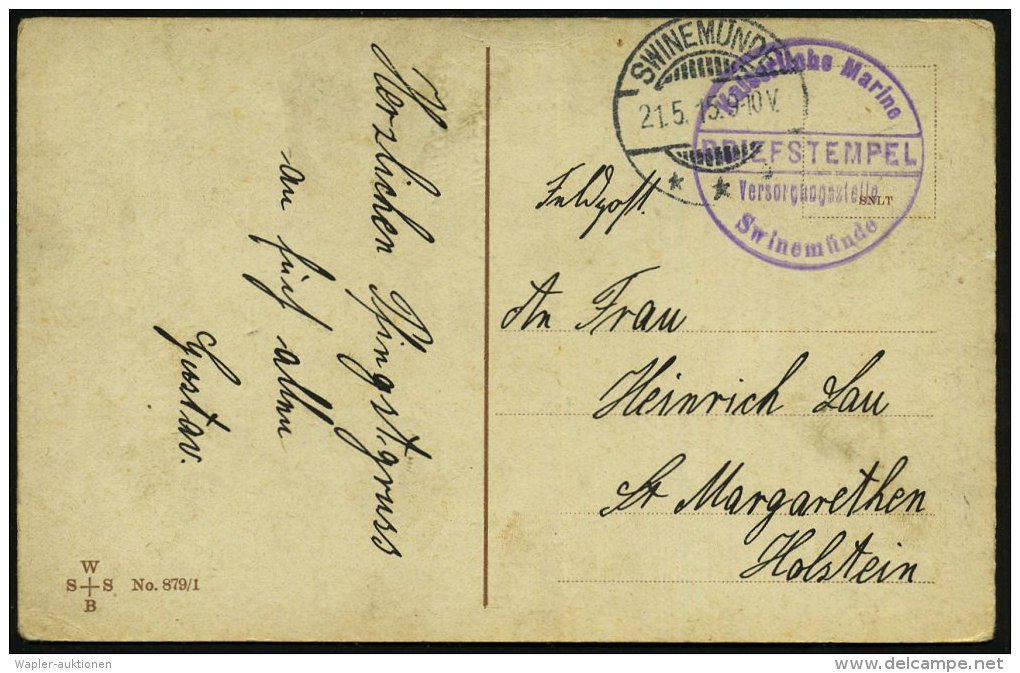 Herzlichen Pfingst.gruss
an
allen
Gustav.
W
S S
B
No. 879/1
SWINEMÜNDE
21.5.15.9-10V.
* *
Kaiserliche Marine
BRIEFSTEMPEL
Versorgungsstelle
Swinemünde
SNLT
Feldpost.
An Frau
Heinrich Lau
St Margarethen
Holstein
Wapler-auktionen
www.delcampe.net